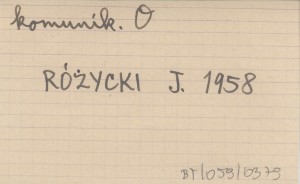 komunik. O
RÓŻYCKI J. 1958
BT/059/0379